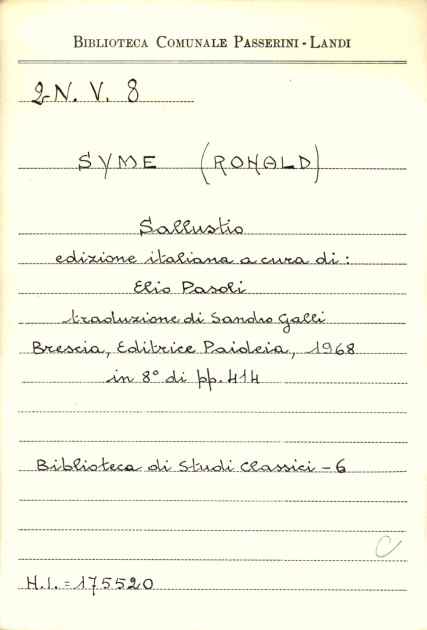 BIBLIOTECA COMUNALE PASSERINI - LANDI
2N. V. 8
SYME (RONALD)
Sallustio
edizione italiana a cura di :
Elio Pasoli
traduzione di Sandro Galli
Brescia, Editrice Paideia, 1968
in 8° di pp. 414
Biblioteca di Studi Classici - 6
C
H.I. = 175520